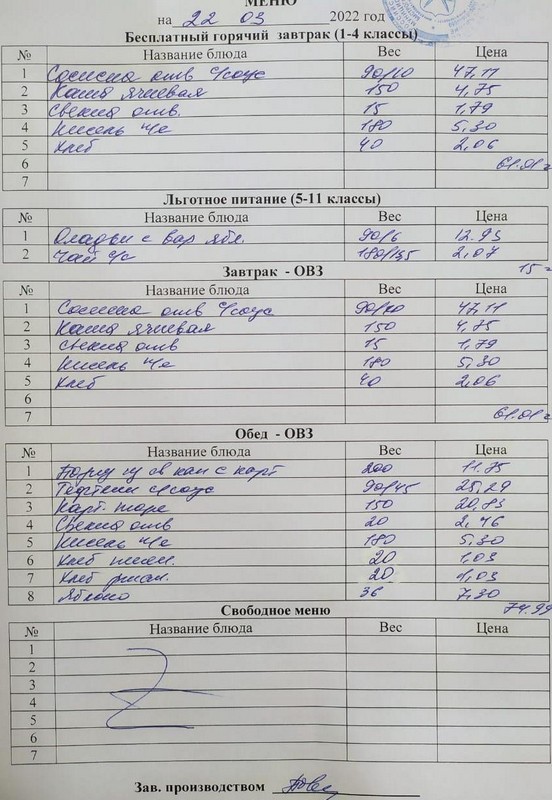 МЕНЮ
на 22 03 2022 год
Бесплатный горячий завтрак (1-4 классы)
№ Название блюда Вес Цена
1 Сосиска отв с/соус 47,11
2 Каша ячневая 150 4,75
3 Свекла отв. 15 1,79
4 Кисель 180 5,30
5 Хлеб 40 2,06
6 61.01
7
Льготное питание (5-11 классы)
№ Название блюда Вес Цена
1 Оладьи с вар ябл. 90/6 12.93
2 Чай 2,07
15
Завтрак - ОВЗ
№ Название блюда Вес Цена
1 Сосиска отв с/соус 47,11
2 Каша ячневая 150 4,75
3 Свекла отв 15 1,79
4 Кисель 180 5,30
5 Хлеб 40 2,06
6
7 61.01
Обед - ОВЗ
№ Название блюда Вес Цена
1 св кап с карт 200 11.75
2 Тефтели с/соус 90/45 25,29
3 Карт. пюре 150 20,83
4 Свекла отв 20 2,46
5 Кисель 180 5,30
6 Хлеб пшен. 20 1,03
7 Хлеб ржан. 20 1,03
8 Яблоко 36 7,30
Свободное меню 74.99
№ Название блюда Вес Цена
1
2
3
4
5
6
7
Зав. производством